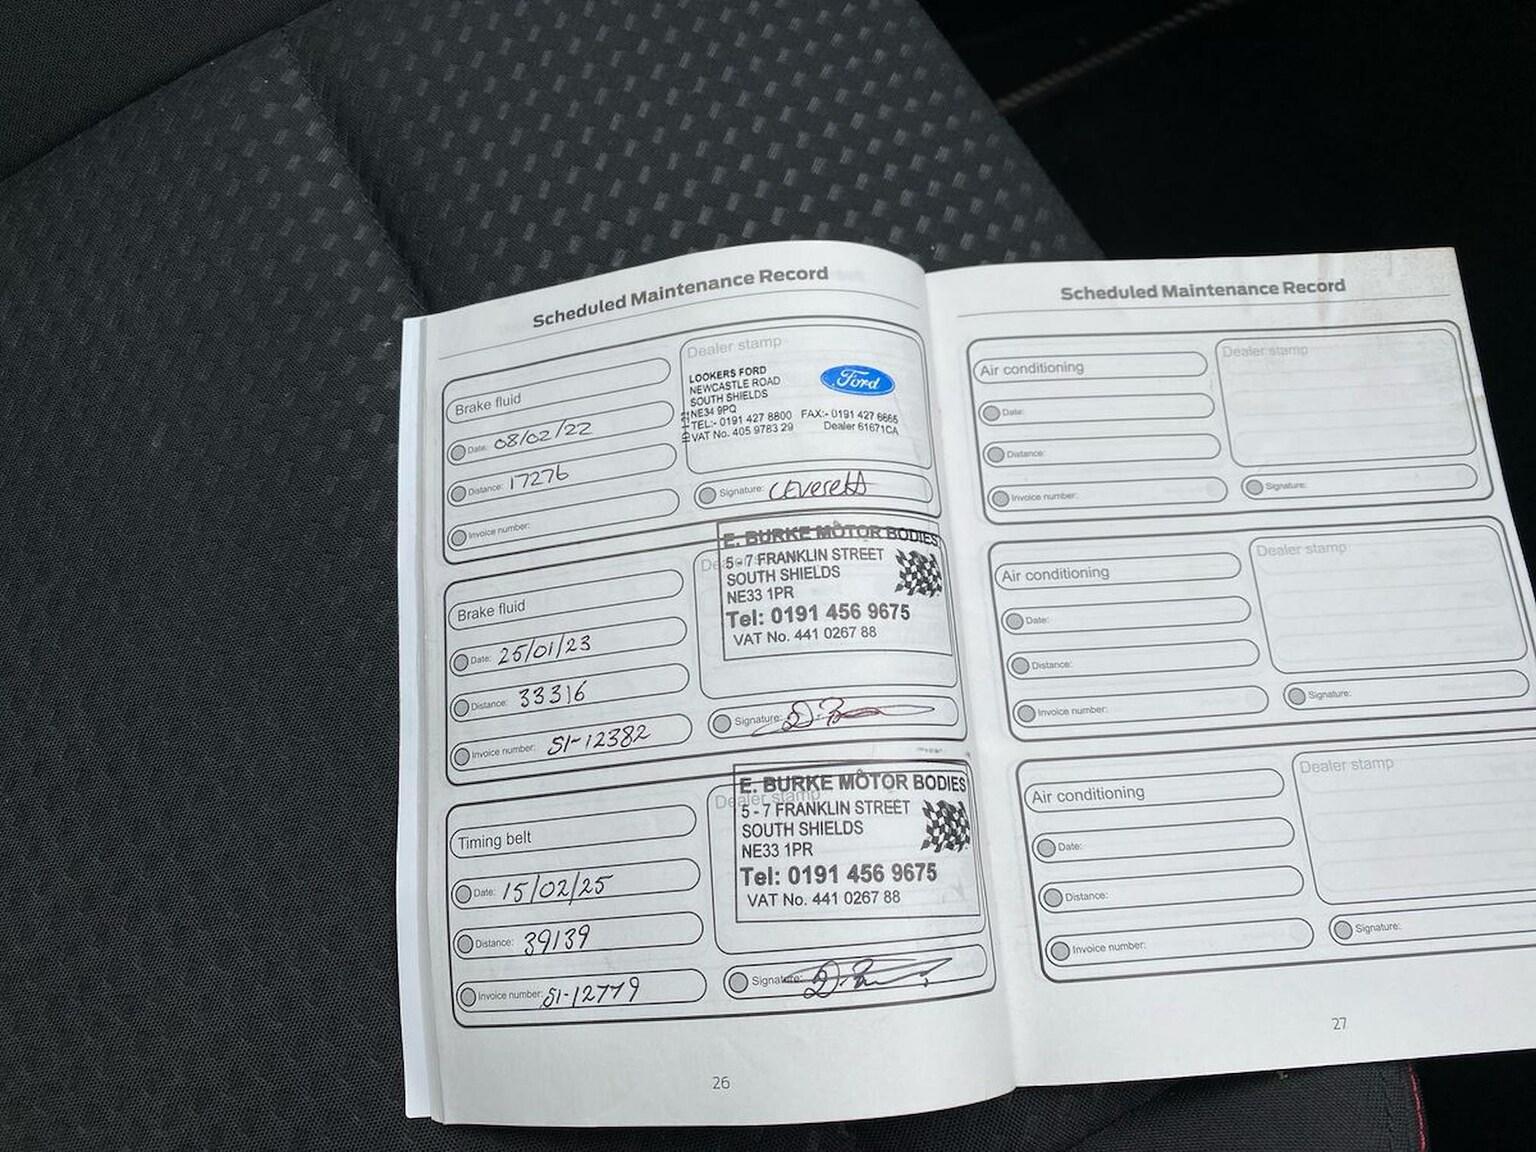 Scheduled Maintenance Record
Brake fluid
Date: 08/02/22
Distance: 17276
Invoice number:
Dealer stamp
LOOKERS FORD
NEWCASTLE ROAD
SOUTH SHIELDS
NE34 9PQ
TEL:- 0191 427 8800 FAX:- 0191 427 6665
VAT No. 405 9783 29 Dealer 61671CA
Ford
Signature: Everett
Brake fluid
Date: 25/01/23
Distance: 33316
Invoice number: SI-12382
Dealer stamp
E. BURKE MOTOR BODIES
5 - 7 FRANKLIN STREET
SOUTH SHIELDS
NE33 1PR
Tel: 0191 456 9675
VAT No. 441 0267 88
Signature:
Timing belt
Date: 15/02/25
Distance: 39139
Invoice number: SI-12779
Dealer stamp
E. BURKE MOTOR BODIES
5 - 7 FRANKLIN STREET
SOUTH SHIELDS
NE33 1PR
Tel: 0191 456 9675
VAT No. 441 0267 88
Signature:
26
Scheduled Maintenance Record
Air conditioning
Date:
Distance:
Invoice number:
Dealer stamp
Signature:
Air conditioning
Date:
Distance:
Invoice number:
Dealer stamp
Signature:
Air conditioning
Date:
Distance:
Invoice number:
Dealer stamp
Signature:
27